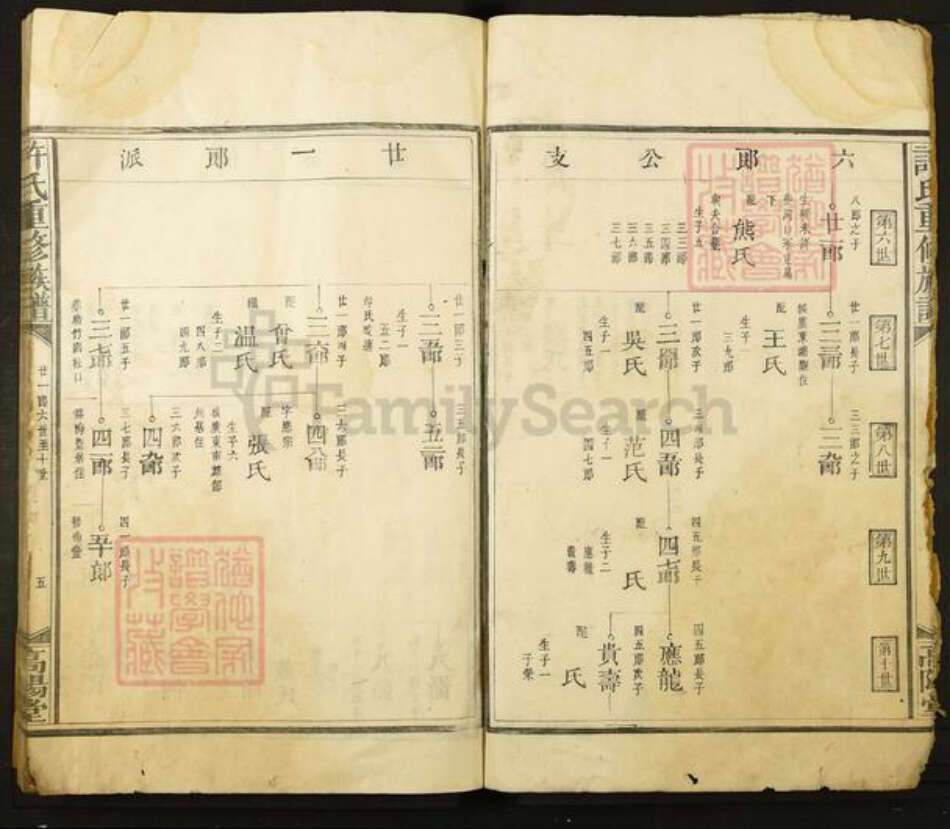 六郎公支
許氏重修族譜
高陽堂
第六世
第七世
第八世
第九世
第十世
八郎之子
廿一郎
配
熊氏
生子五
三三郎
三四郎
三五郎
三六郎
三七郎
廿一郎長子
三三郎
配
王氏
生子一
三九郎
三三郎之子
三九郎
廿一郎次子
三四郎
配
吳氏
生子一
四五郎
三四郎長子
四五郎
配
范氏
生子一
四七郎
四五郎長子
四七郎
配
氏
生子二
應龍
貴壽
四五郎長子
應龍
四五郎次子
貴壽
配
氏
生子一
子榮
廿一郎派
廿一郎三子
三五郎
生子一
五三郎
三五郎長子
五三郎
廿一郎四子
三六郎
配
曾氏
繼
溫氏
生子二
四八郎
四九郎
三六郎長子
四八郎
配
張氏
生子六
三六郎次子
四九郎
廿一郎五子
三七郎
三七郎長子
四一郎
四一郎長子
五十郎
許氏重修族譜
廿一郎六世至十世
五
高陽堂
猶他家
譜學會
收藏
猶他家
譜學會
收藏
FamilySearch